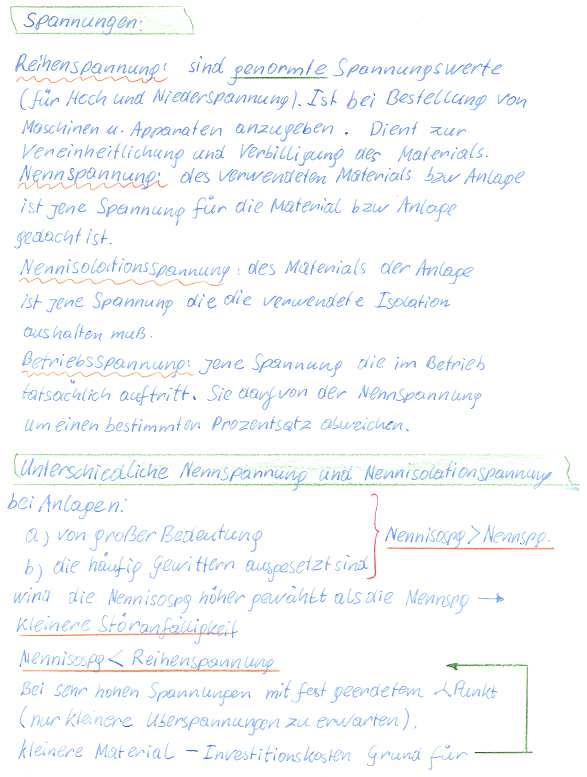 Spannungen:
Reihenspannung: sind genormte Spannungswerte
(für Hoch und Niederspannung). Ist bei Bestellung von
Maschinen u. Apparaten anzugeben. Dient zur
Vereinheitlichung und Verbilligung des Materials.
Nennspannung: des verwendeten Materials bzw Anlage
ist jene Spannung für die Material bzw Anlage
gedacht ist.
Nennisolationsspannung: des Materials der Anlage
ist jene Spannung die die verwendete Isolation
aushalten muß.
Betriebsspannung: jene Spannung die im Betrieb
tatsächlich auftritt. Sie darf von der Nennspannung
um einen bestimmten Prozentsatz abweichen.
Unterschiedliche Nennspannung und Nennisolationspannung
bei Anlagen:
a) von großer Bedeutung
b) die häufig Gewittern ausgesetzt sind
Nennisospg > Nennspg.
wird die Nennisospg höher gewählt als die Nennspg →
kleinere Störanfälligkeit
Nennisospg < Reihenspannung
Bei sehr hohen Spannungen mit fest geerdetem Punkt
(nur kleinere Überspannungen zu erwarten).
kleinere Material - Investitionskosten Grund für